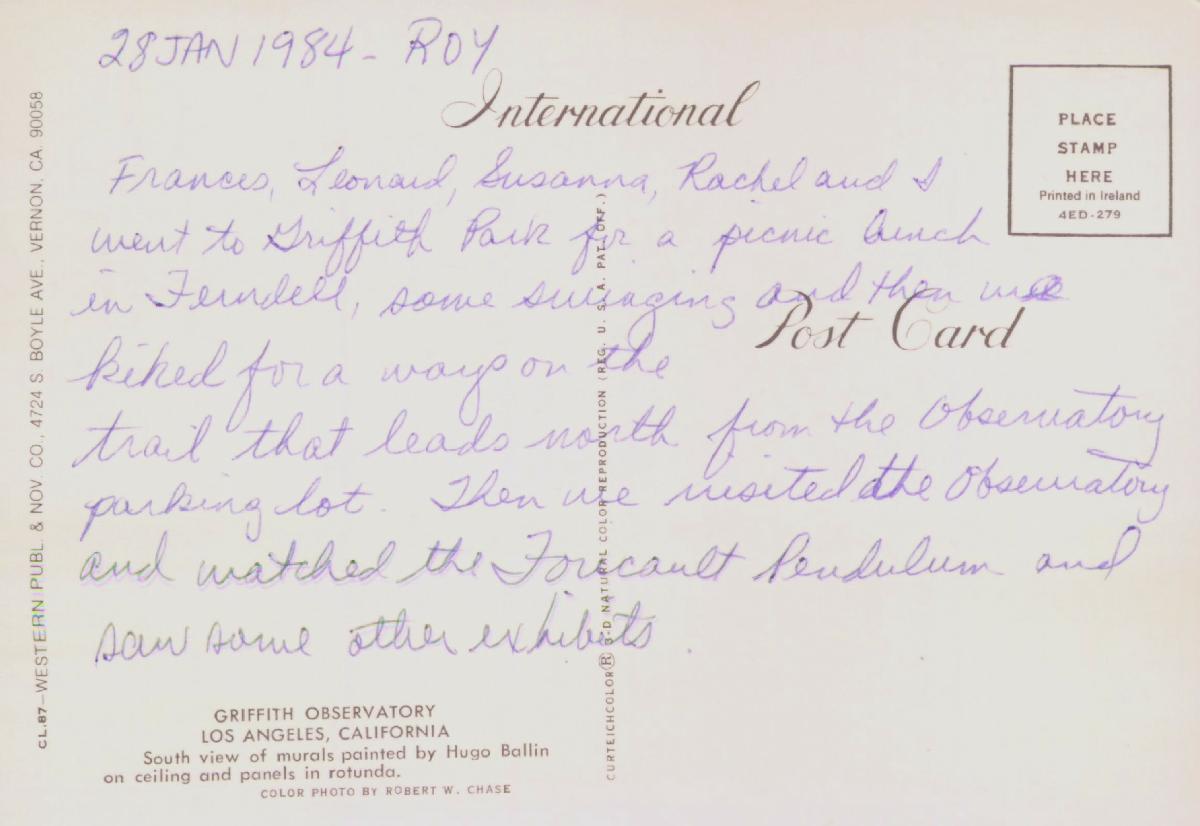 28 JAN 1984 - ROY
International
PLACE
STAMP
HERE
Printed in Ireland
4ED-279
Frances, Leonard, Susanna, Rachel and I
went to Griffith Park for a picnic lunch
in Ferndell, some swinging and then we
Post Card
hiked for a ways on the
trail that leads north from the Observatory
parking lot. Then we visited the Observatory
and watched the Foucault Pendulum and
saw some other exhibits.
GRIFFITH OBSERVATORY
LOS ANGELES, CALIFORNIA
South view of murals painted by Hugo Ballin
on ceiling and panels in rotunda.
COLOR PHOTO BY ROBERT W. CHASE
CL.87—WESTERN PUBL. & NOV. CO., 4724 S. BOYLE AVE., VERNON, CA. 90058
CURTEICHCOLOR® 3-D NATURAL COLOR REPRODUCTION (REG. U. S. A. PAT. OFF.)